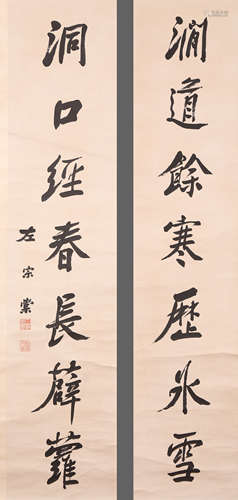 澗道餘寒歷氷雪
洞口經春長薜蘿
左宗棠